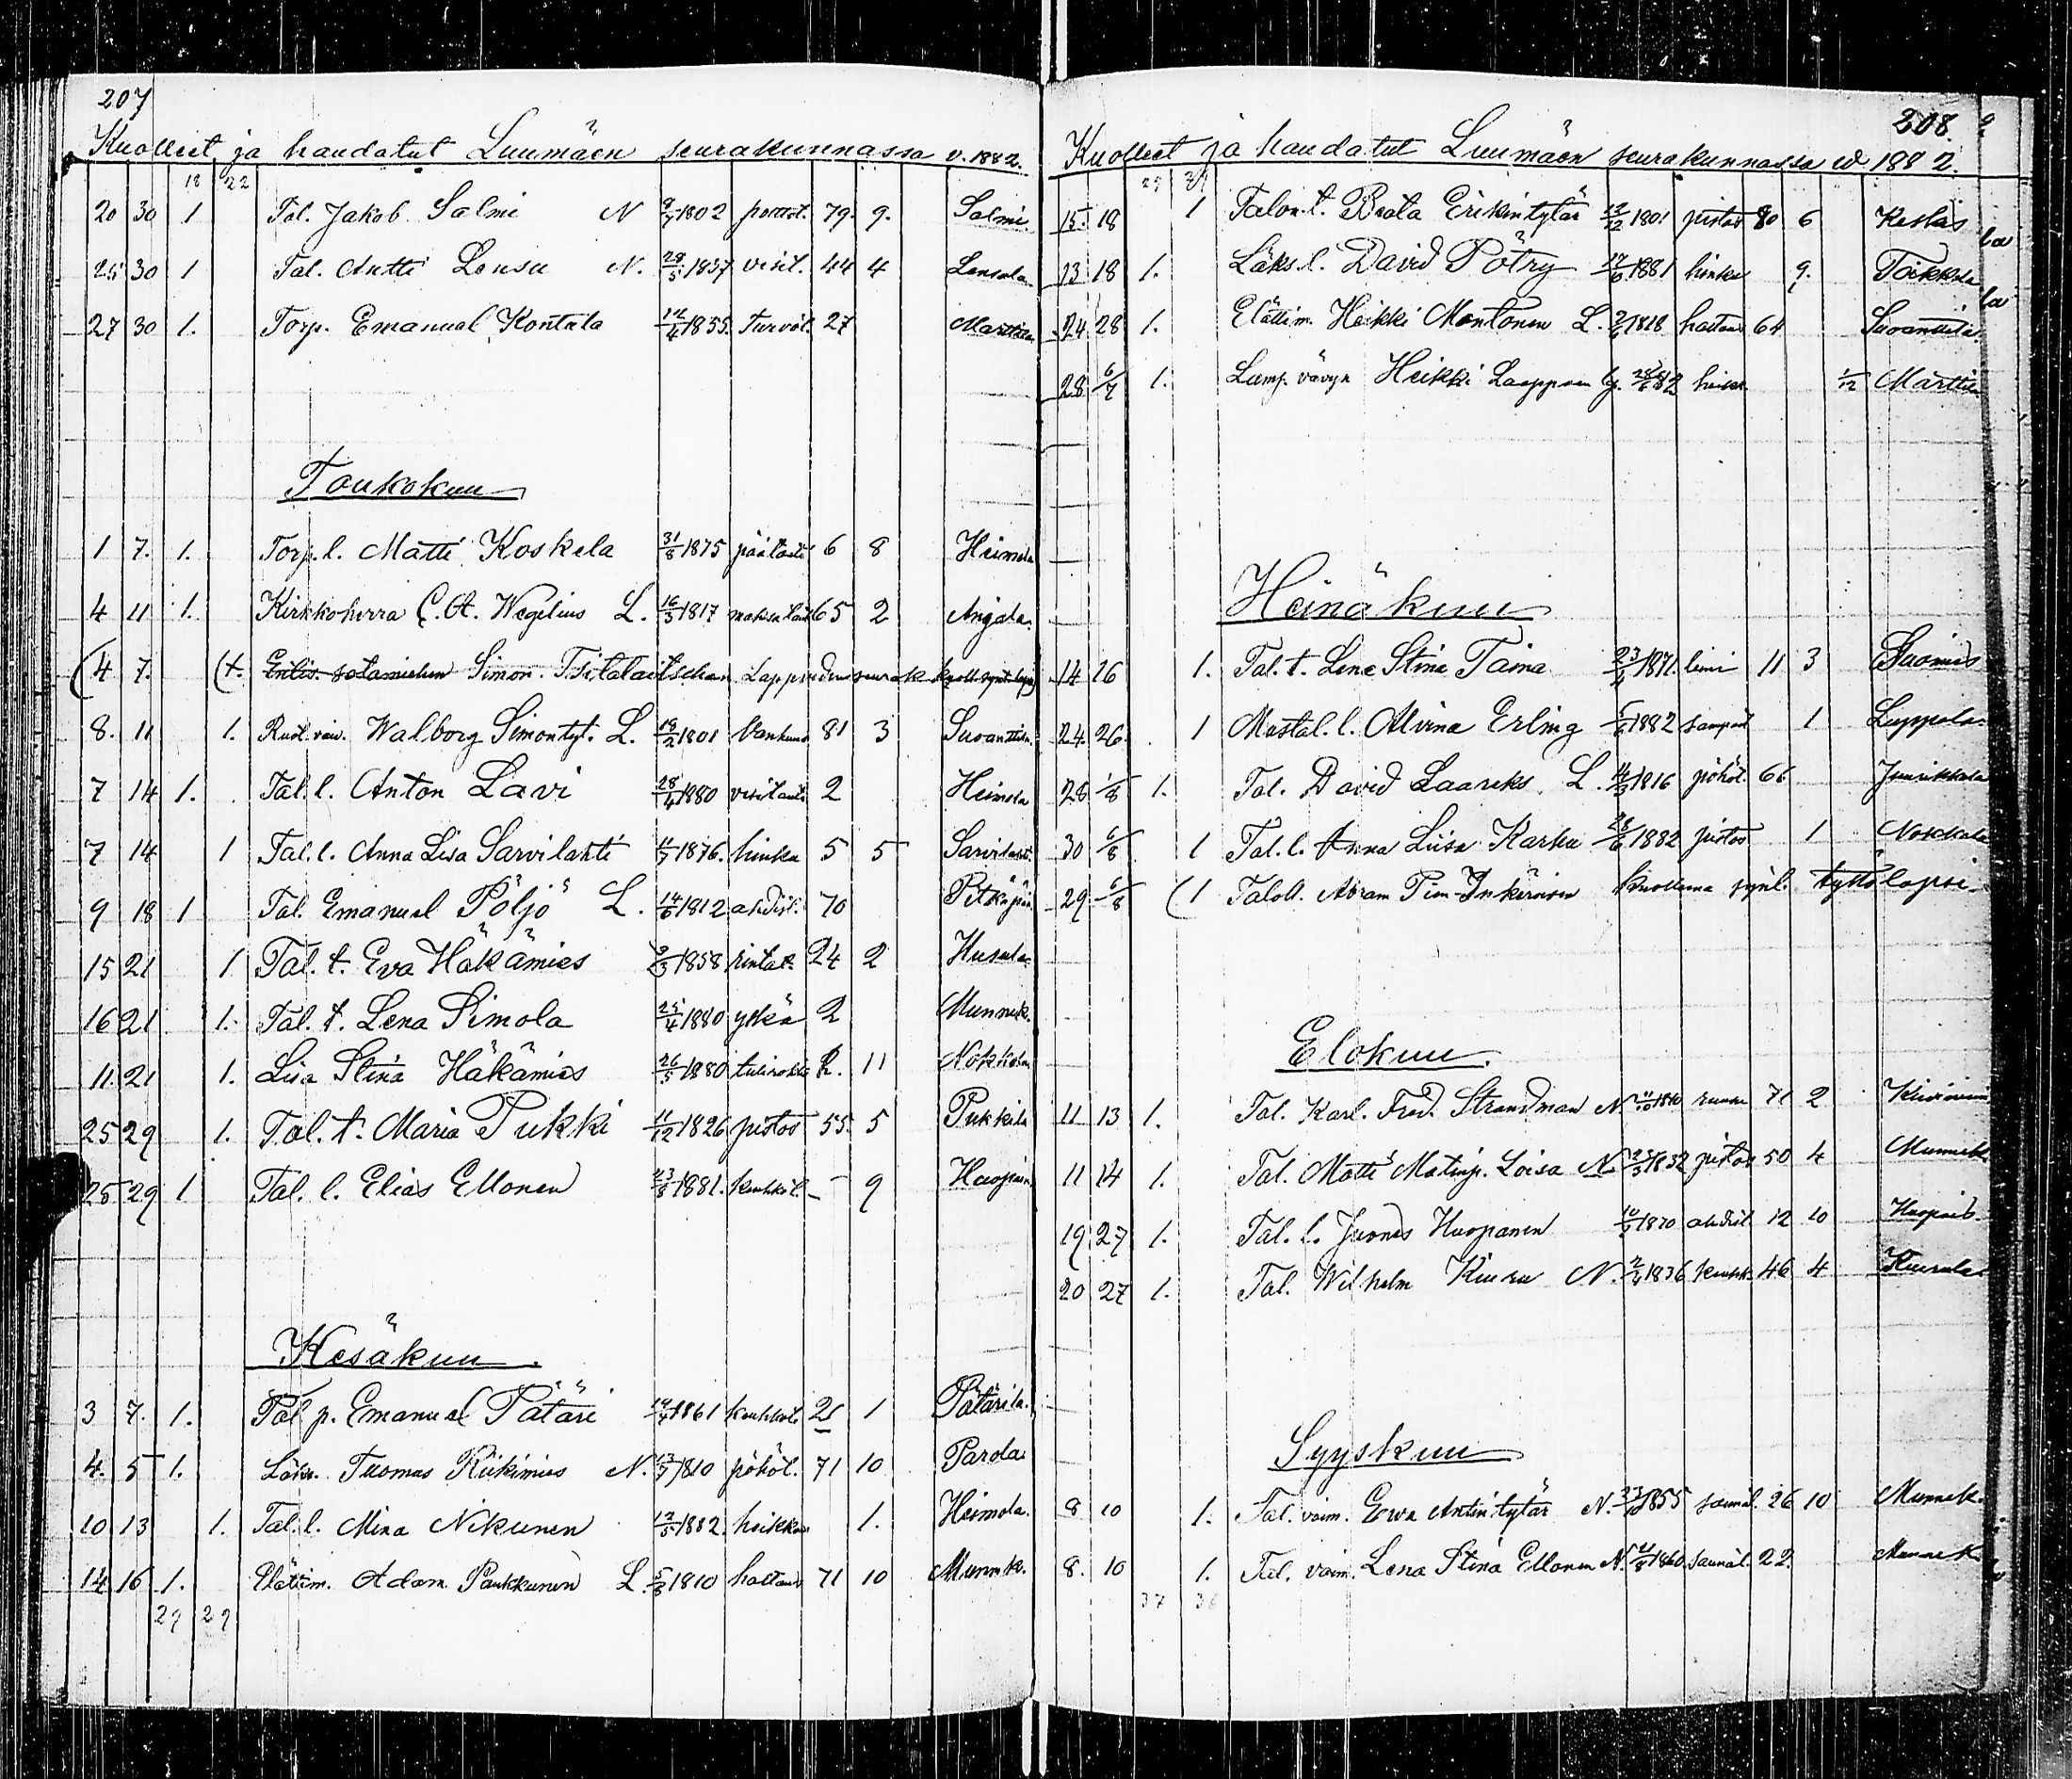 207
Kuolleet ja haudatut Luumäen seurakunnassa v. 1882.
18 22
20 30 1 Tal. Jakob Salmi N 9/7 1802 79. 9. Salmi
25 30 1 Tal. Antti Lensu N. 28/5 1837 visit. 44 4 Lensula
27 30 1. Torp. Emanuel Kontula 12/4 1855. Turvot. 27 Marttila
Toukokuu
1 7. 1. Torp. l. Matti Koskela 31/8 1875 päätauti 6 8 Heimola
4 11 1. Kirkkoherra C. A. Wegelius L. 16/3 1817 maksataut 65 2 Anjala.
(4 7. (t. Entis. sotamiehen Simon Lappveden seurak kuoll. synt. lapsi)
8. 11 1. Ruot. vaiv. Walborg Simontyt. L. 19/2 1801 Vanhuus 81 3 Suoanttila.
7 14 1. Tal. l. Anton Lavi 28/4 1880 visitauti 2 Heimola
7 14 1 Tal. l. Anna Lisa Sarvilahti 1876. hinku 5 5 Sarvilahti
9 18 1 Tal. Emanuel Pöljö L. 14/6 1812 ahdist. 70 Pitkäpää
15 21 1 Tal. t. Eva Häkämies 2/3 1858 rintat. 24 2 Husula
16 21 1. Tal. t. Lena Simola 25/4 1880 yskä 2 Munnik.
11. 21 1. Lisa Stina Häkämies 26/5 1880 tulirokko 11 Nokkola
25 29 1. Tal. t. Maria Pukki 11/12 1826 pistos 55. 5 Pukkila
25 29 1 Tal. l. Elias Ellonen 23/8 1881. keuhköt. – 9 Haapaa
Kesäkuu.
3 7. 1. Tal p. Emanuel Pätäri 1861 keuhköt 21 1 Pätärila.
4. 5 1. Läks. Tuomas Riikimies N. 1810 pöhöt. 71 10 Parola
10 13 1. Tal. l. Mina Nikunen 12/5 1882. heikko 1. Heimola.
14 16 1. Elättim. Adam Paukkunen L. 5/8 1810 haltaus 71 10 Munnik.
29 29
208
Kuolleet ja haudatut Luumäen seurakunnassa w 1882.
29 29
15. 18 1 Talon. t. Beata Erikintytär 12/12 1801 pistos 80 6 Keslas
13 18 1. Läks l. David Pötry 17/9 1881 hinku 9. Toikkala
24 28 1. Elättim. Heikki Montonen L. 1818 haltaus 64 Suoanttila.
28 6/7 1. Lamp. vävyn Heikki Laappanen 1/12 Marttila
Heinäkuu
14 16 1. Tal. t. Lena Stina Taina 23/4 1871. 11 3 Suomis
24. 26. 1 Mustal. l. Alvina Erling 5/6 1882 1 Luppola
28 1/8 1. Tal. David Laareks L. 14/3 1816 pöhöt. 66 Junikkala
30 6/8 1 Tal. l. Anna Liisa Karhu 28/6 1882 pistos 1 Nokkala
29 6/8 (1 Taloll. Abram Pien-Inkeroisen kuollena synt. tyttölapsi.
Elokuu.
11 13 1. Tal. Karl. Fred. Strandman N. 1810 71 2
11 14 1. Tal. Matti Matinp. Loisa N. 1832 pistos 50 4 Munnikk
19 27 1. Tal. l. Juonas Huopanen 10/9 1870 ahdist 12 10
20 27 1. Tal. Wilhelm Kiuru N. 2/4 1836 keuhk. 46 4 Kiurula
Syyskuu
8 10 1. Tal. vaim. Ewa Antintytär N. 23/10 1855 26 10 Munnik.
8. 10 1. Tal. vaim. Lena Stina Ellonen N. 1860 22. Munnik
37